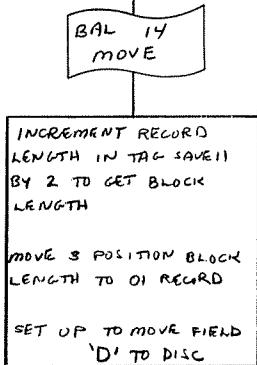 BAL 14
MOVE
INCREMENT RECORD
LENGTH IN TAG SAVE11
BY 2 TO GET BLOCK
LENGTH
MOVE 3 POSITION BLOCK
LENGTH TO 01 RECORD
SET UP TO MOVE FIELD
'D' TO DISC